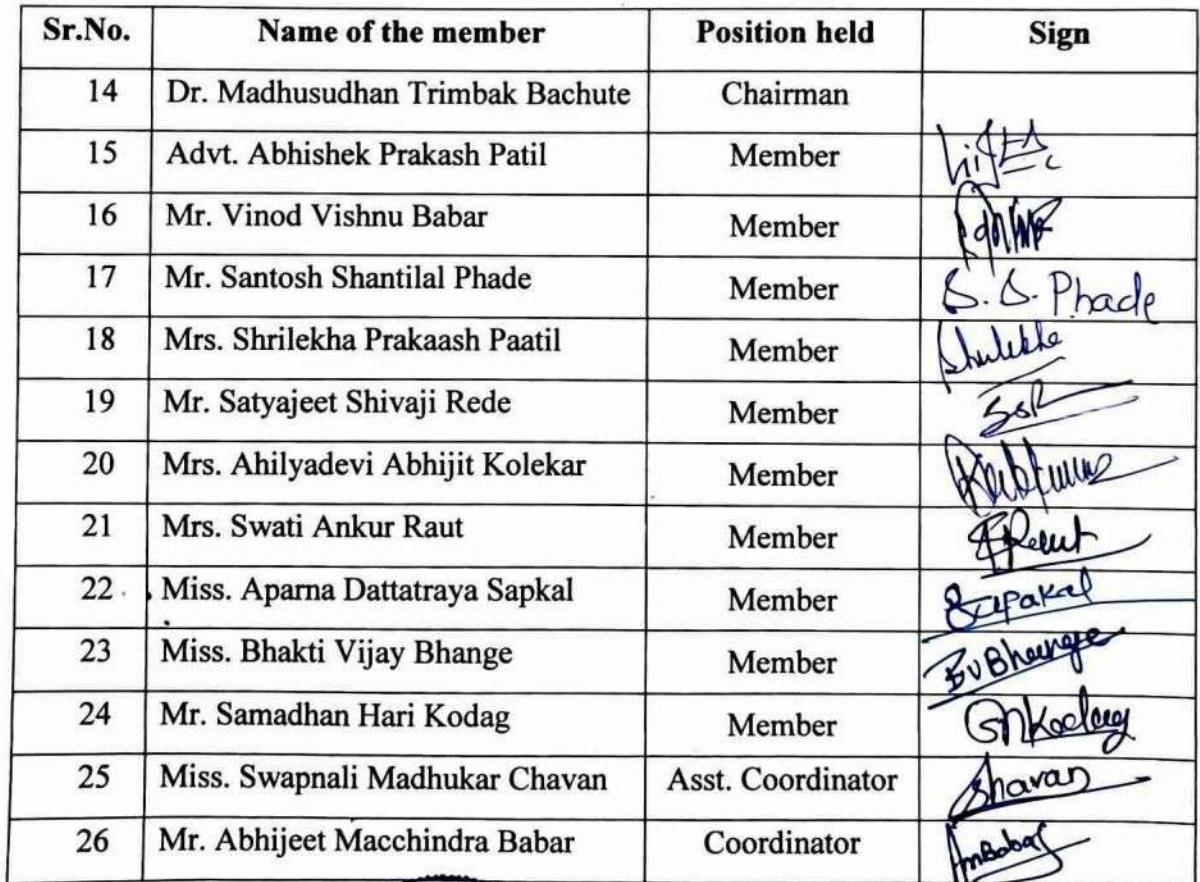 Sr.No. Name of the member Position held Sign
14 Dr. Madhusudhan Trimbak Bachute Chairman
15 Advt. Abhishek Prakash Patil Member
16 Mr. Vinod Vishnu Babar Member
17 Mr. Santosh Shantilal Phade Member S. S. Phade
18 Mrs. Shrilekha Prakaash Paatil Member Shrilekha
19 Mr. Satyajeet Shivaji Rede Member SSR
20 Mrs. Ahilyadevi Abhijit Kolekar Member
21 Mrs. Swati Ankur Raut Member
22 Miss. Aparna Dattatraya Sapkal Member
23 Miss. Bhakti Vijay Bhange Member BVBhange
24 Mr. Samadhan Hari Kodag Member
25 Miss. Swapnali Madhukar Chavan Asst. Coordinator
26 Mr. Abhijeet Macchindra Babar Coordinator AmBabar